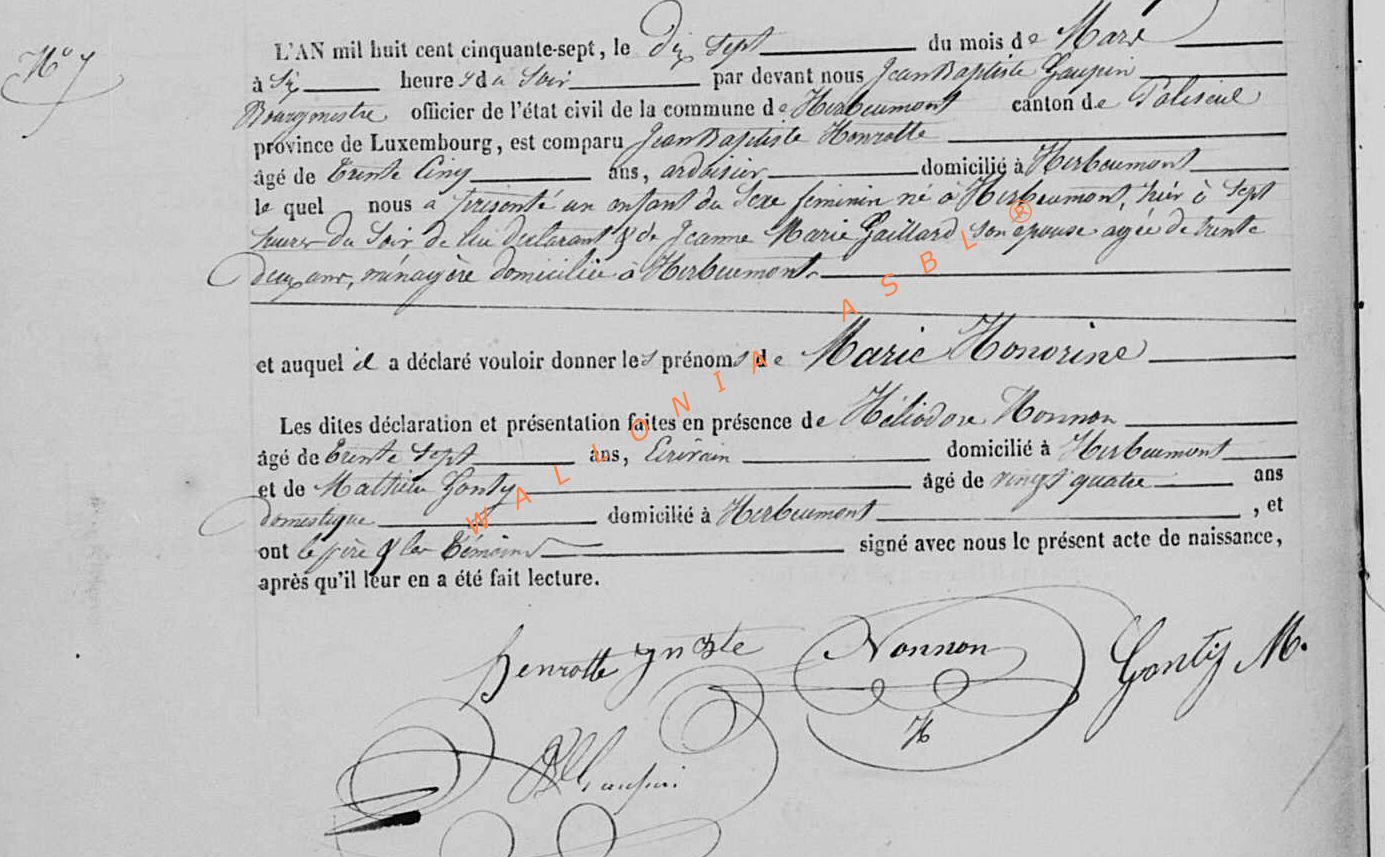 N° 7
L'AN mil huit cent cinquante-sept, le dix sept du mois de Mars
à Six heures du Soir par devant nous Jean Baptiste Gaupin
Bourgmestre officier de l'état civil de la commune de Herbeumont canton de Paliseul
province de Luxembourg, est comparu Jean Baptiste Henrotte
âgé de trente Cinq ans, ardoisier domicilié à Herbeumont
le quel nous a présenté un enfant du Sexe féminin né à Herbeumont, hier à Sept
heures du Soir de lui déclarant & de Jeanne Marie Gaillard son épouse agée de trente
deux ans, ménagère domiciliée à Herbeumont.
et auquel il a déclaré vouloir donner les prénoms de Marie Honorine
Les dites déclaration et présentation faites en présence de Héliodore Nonnon
âgé de trente Sept ans, Ecrivain domicilié à Herbeumont
et de Mathieu Gonty âgé de vingt quatre ans
domestique domicilié à Herbeumont, et
ont le père & les témoins signé avec nous le présent acte de naissance,
après qu'il leur en a été fait lecture.
henrotte Nonnon Gonty M.
H
Gaupin
WALLONIA ASBL ®